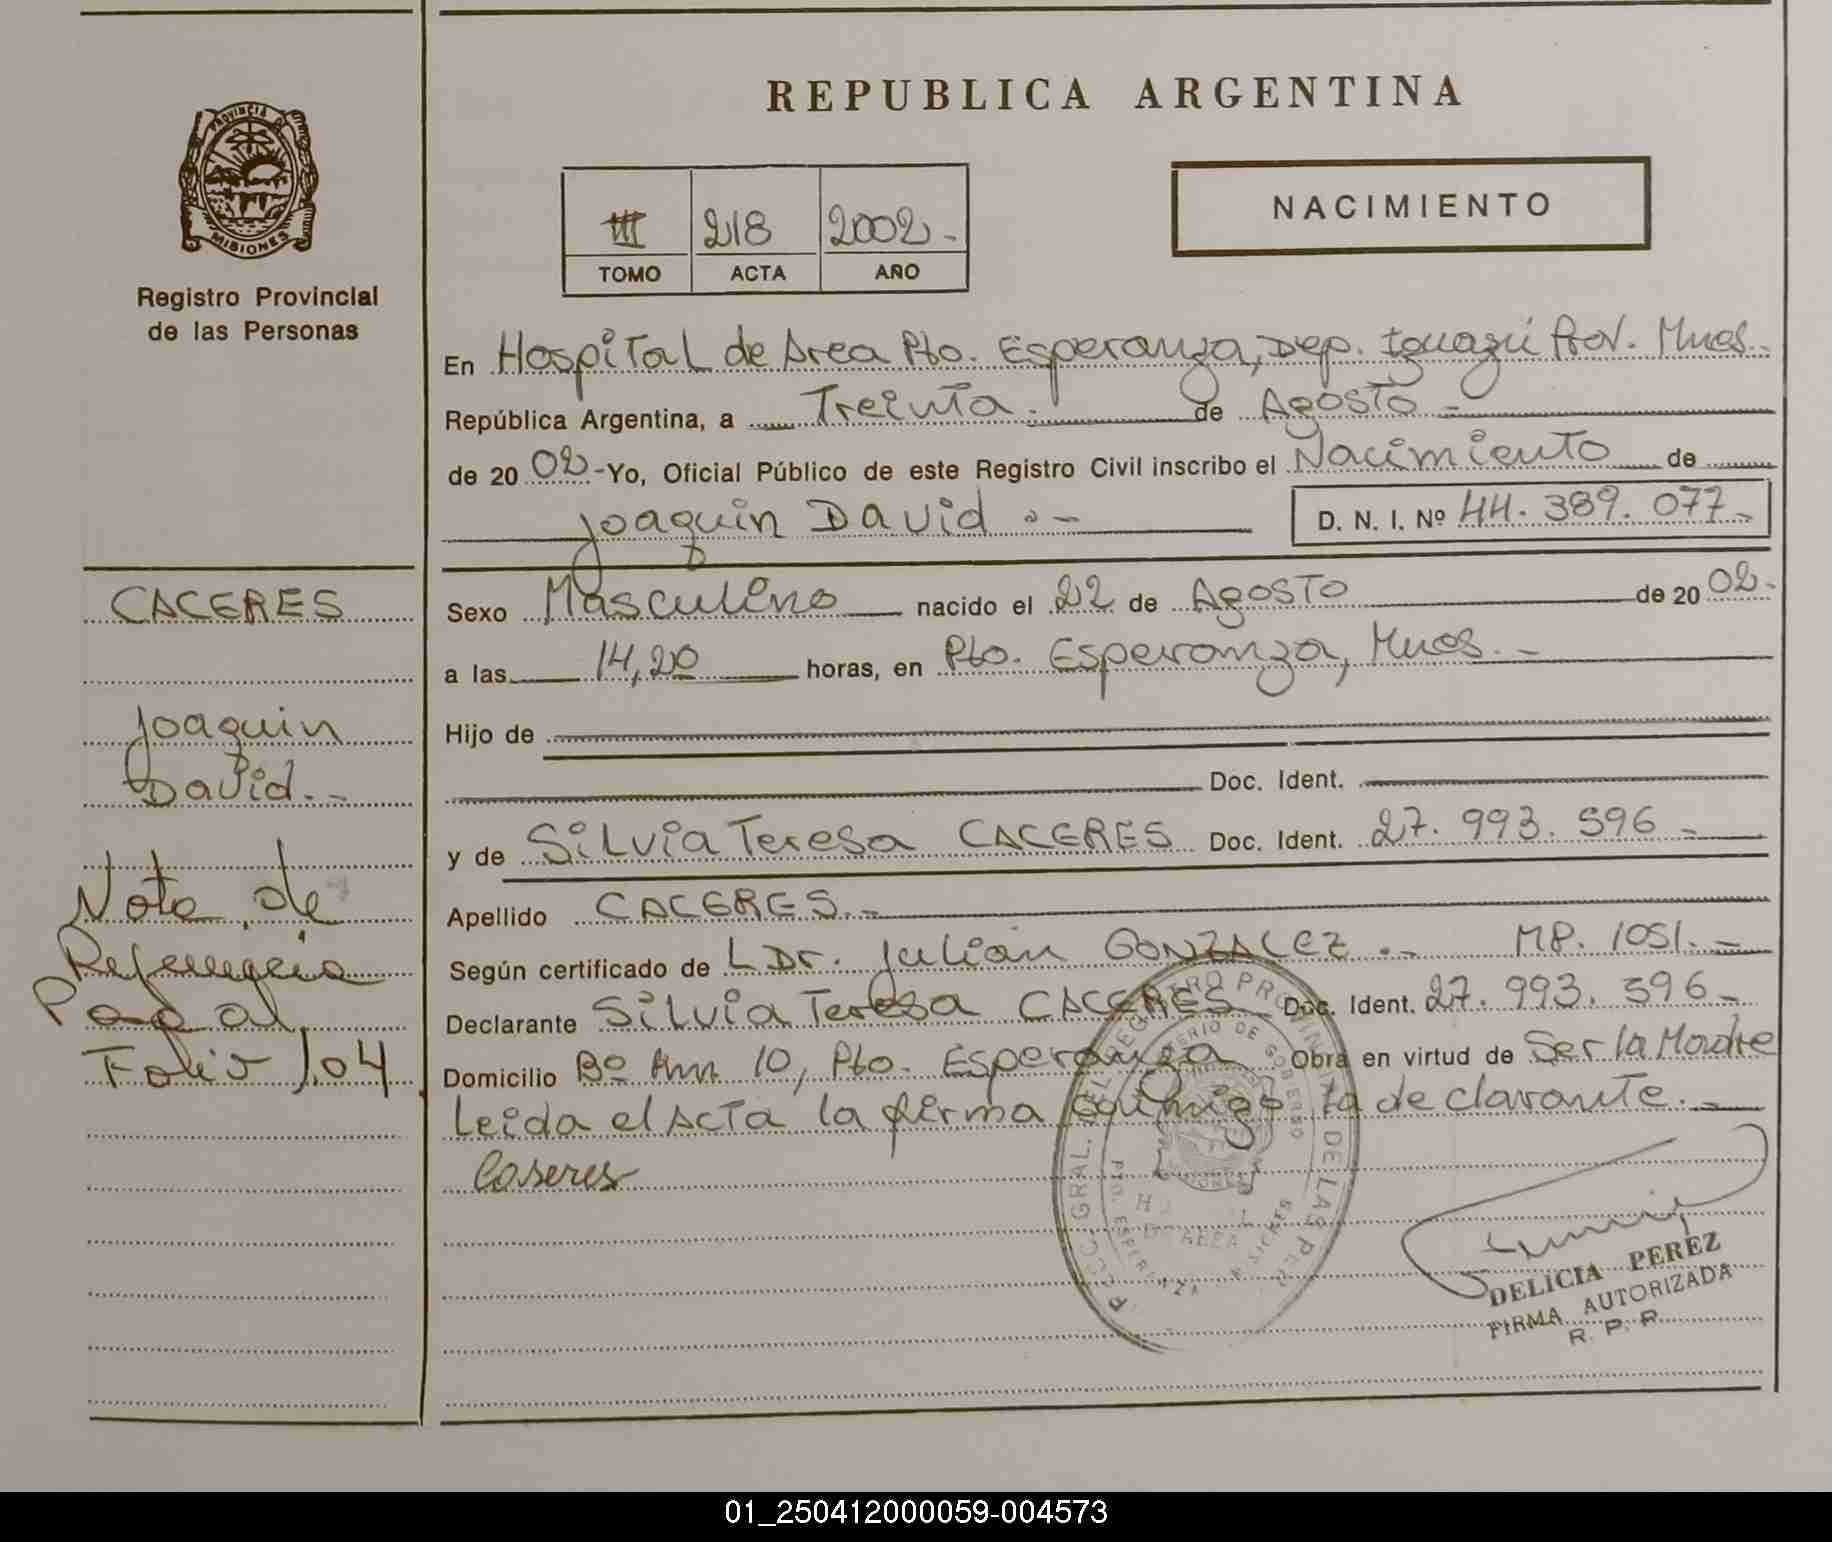 REPUBLICA ARGENTINA
PROVINCIA DE
MISIONES
Registro Provincial
de las Personas
III 218 2002-
TOMO ACTA AÑO
NACIMIENTO
En Hospital de Area Pto. Esperanza, Dep. Iguazú Prov. Mnes.-
República Argentina, a Treinta. de Agosto -
de 20 02-Yo, Oficial Público de este Registro Civil inscribo el Nacimiento de
Joaquin David .-
D. N. I. Nº 44. 389. 077-
CACERES
Joaquin
David.-
Nota de
Referencia
Pasa al
Folio 104
Sexo Masculino nacido el 22 de Agosto de 20 02-
a las 14,20 horas, en Pto. Esperanza, Mnes.-
Hijo de
Doc. Ident.
y de Silvia Teresa CACERES Doc. Ident. 27. 993. 596-
Apellido CACERES.-
Según certificado de L Dr. Julián GONZALEZ.- MP. 1051.-
Declarante Silvia Teresa CACERES Doc. Ident. 27. 993. 596-
Domicilio Bº Km 10, Pto. Esperanza Obra en virtud de Ser la Madre
Leida el Acta la firma conmigo la declarante.-
Caseres
DELICIA PEREZ
FIRMA AUTORIZADA
R. P. P.
01_250412000059-004573